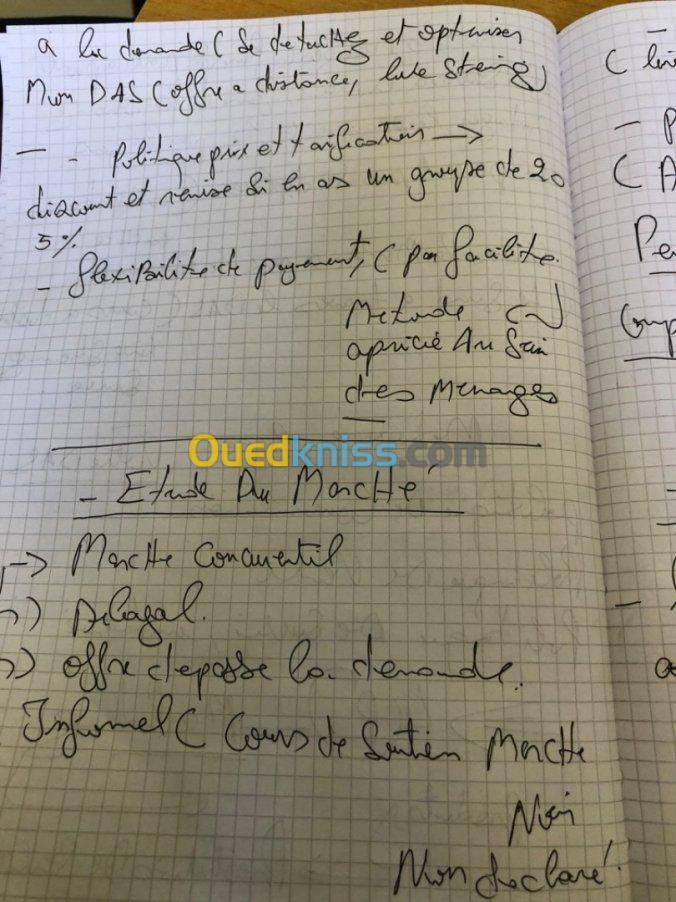 a la demande ( Se detacher et optimiser
Mon DAS ( offre a distance, live Streing )
— - Politique prix et tarification →
discount et remise Si en as un groupe de 20
5 %
- flexibilite de payement, ( par facilite.
Metode
apricié Au Sein
des Menages
Ouedkniss.com
- Etude Du Marché
-> Marche Concurentil
Deloyal.
offre depasse la demande.
Informel ( Cours de Soutien Marche
Noir
Non declaré.
( live
- P
( A
Pe
Comp